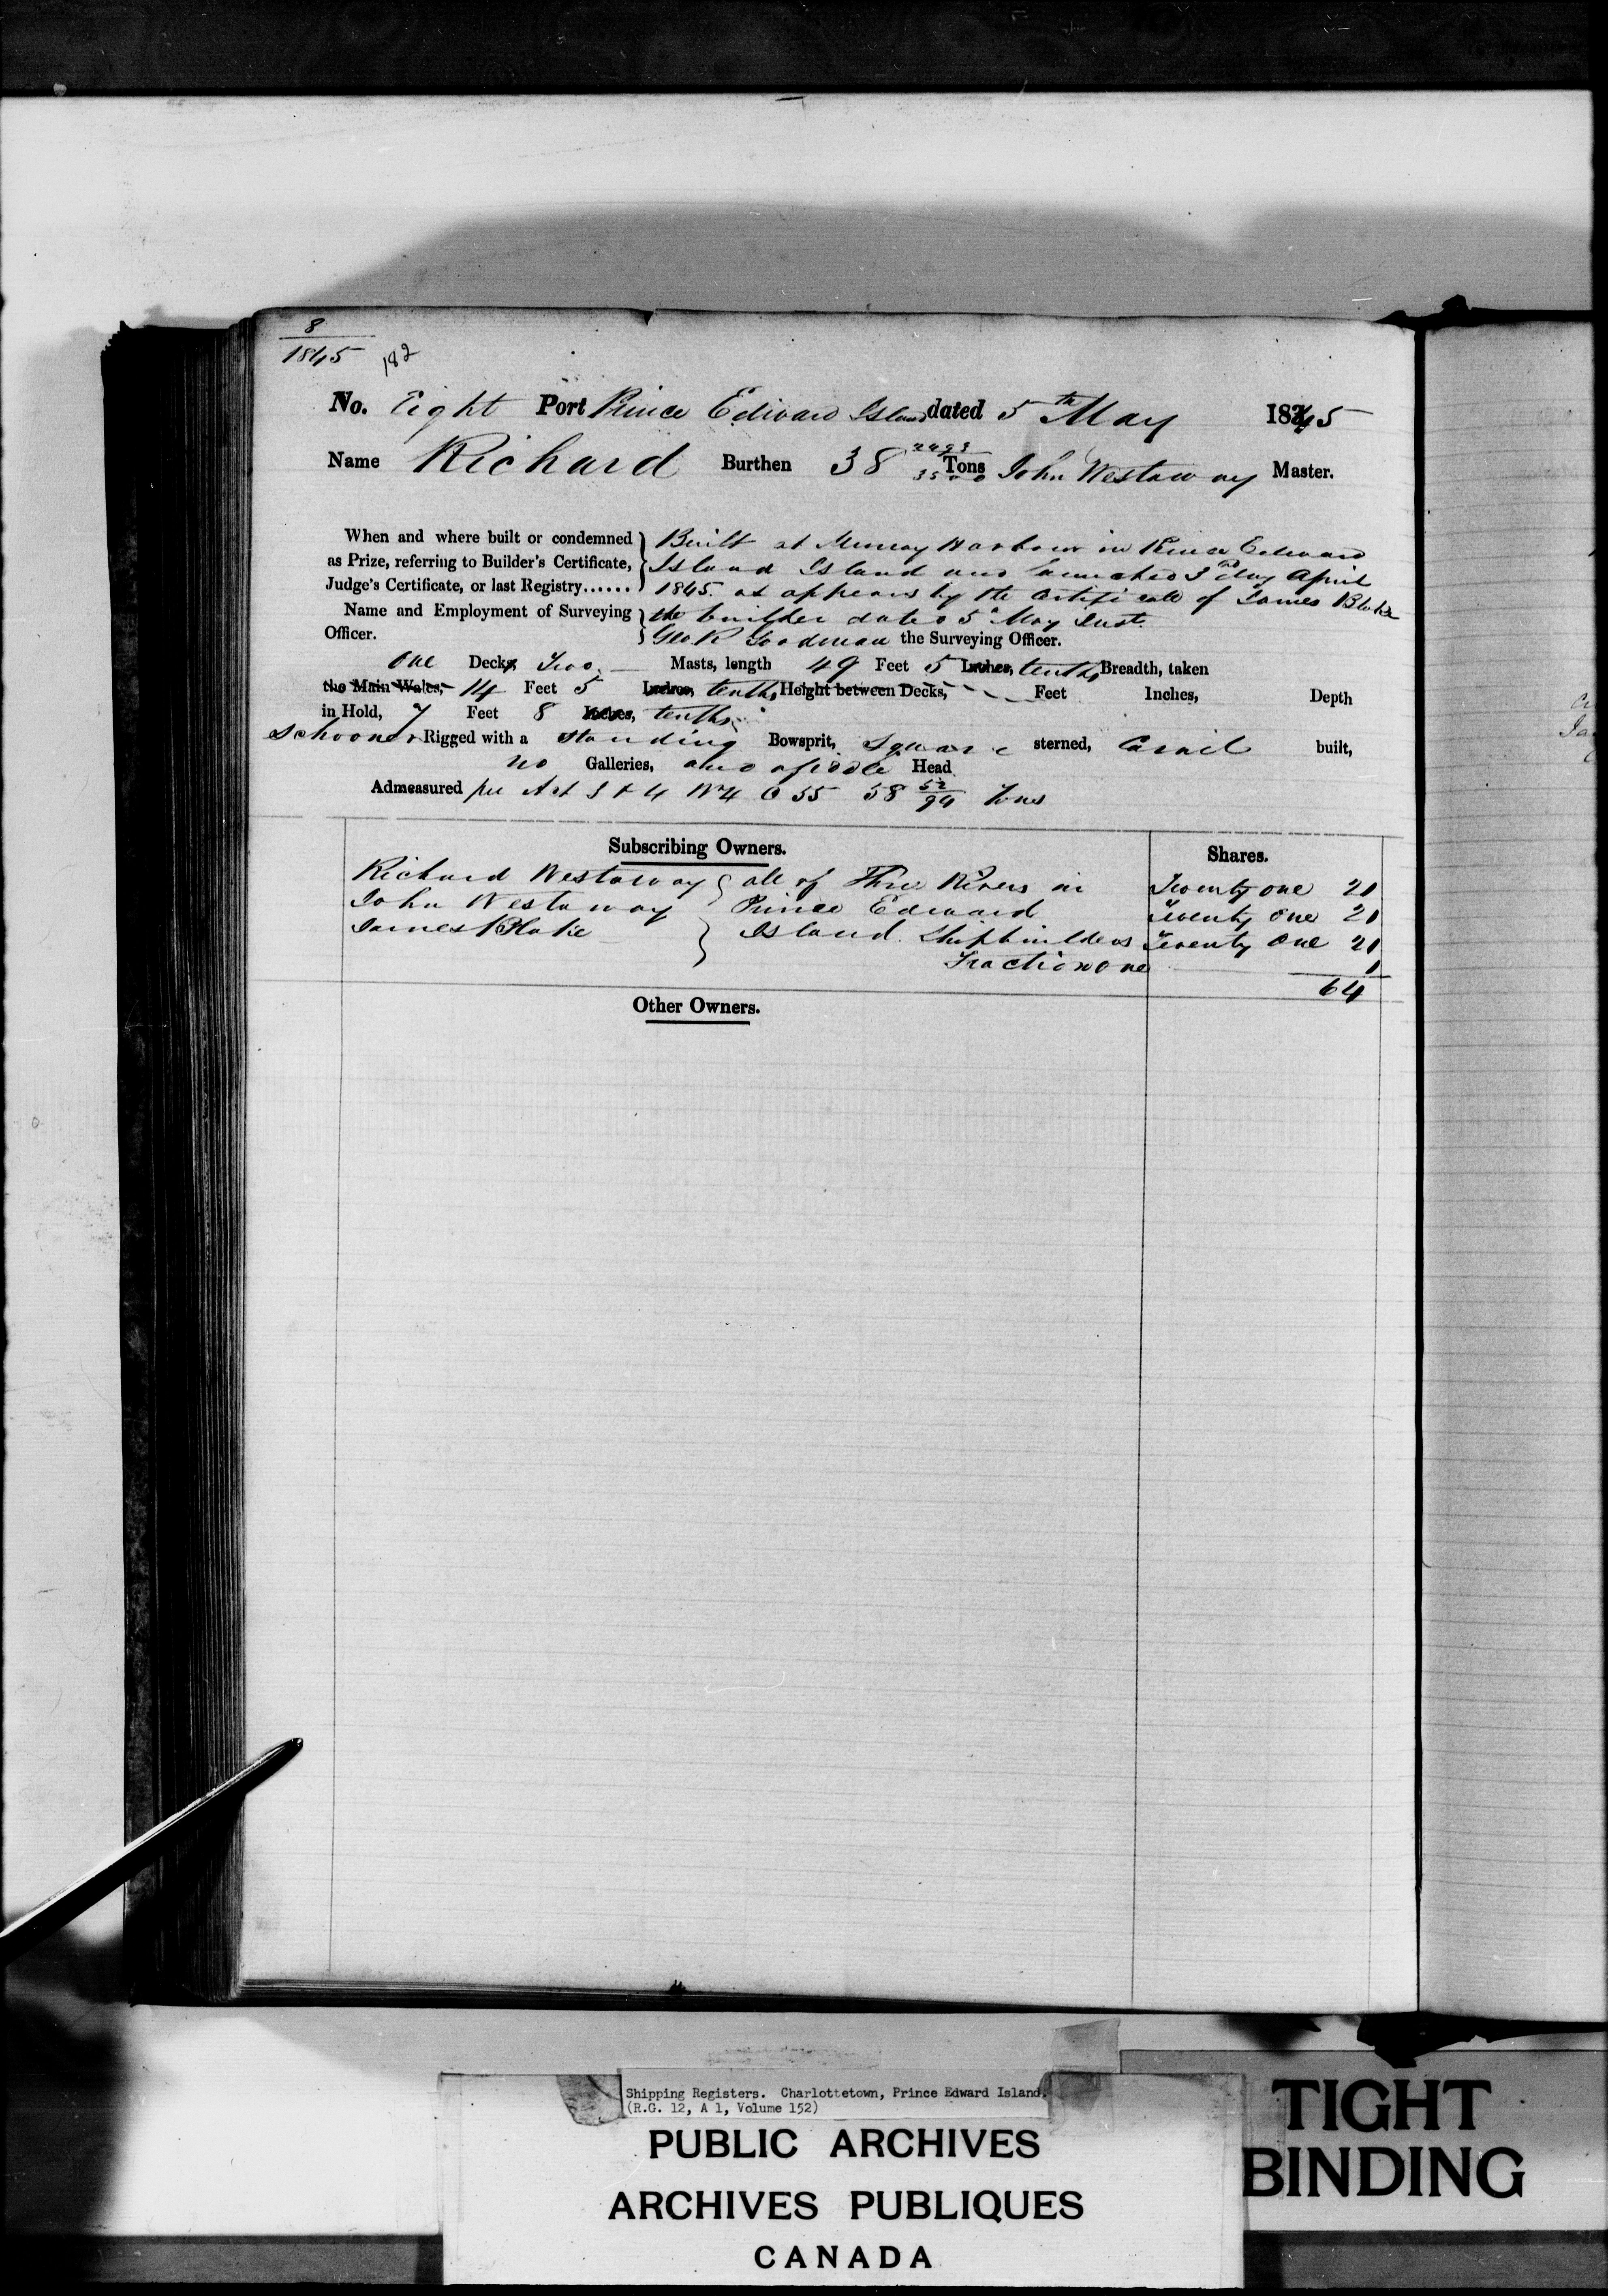 8
1845 182
No. Eight Port Prince Edward Island dated 5th May 1845
Name Richard Burthen 38 2493/3500 Tons John Westaway Master.
When and where built or condemned as Prize, referring to Builder's Certificate, Judge's Certificate, or last Registry......
Built at Murray Harbour in Prince Edward
Island Island and launched 3rd day April
1845. as appears by the Certificate of James Blake
the builder dated 5th May Inst.
Name and Employment of Surveying Officer.
Geo R Goodman the Surveying Officer.
One Decks Two Masts, length 49 Feet 5 Inches, tenths Breadth, taken
the Main Wales, 14 Feet 5 Inches, tenths, Height between Decks, Feet Inches, Depth
in Hold, 7 Feet 8 Inches, tenths
Schooner Rigged with a standing Bowsprit, Square sterned, Carvil built,
no Galleries, and a fiddle Head
Admeasured per Act 3 & 4 Wm 4 C 55 58 52/94 Tons
Subscribing Owners. Shares.
Richard Westaway all of Three Rivers in Twenty one 21
John Westaway Prince Edward Twenty one 21
James Blake Island Shipbuilders Twenty One 21
Fraction One 1
64
Other Owners.
Shipping Registers. Charlottetown, Prince Edward Island.
(R.G. 12, A 1, Volume 152)
PUBLIC ARCHIVES
ARCHIVES PUBLIQUES
CANADA
TIGHT
BINDING